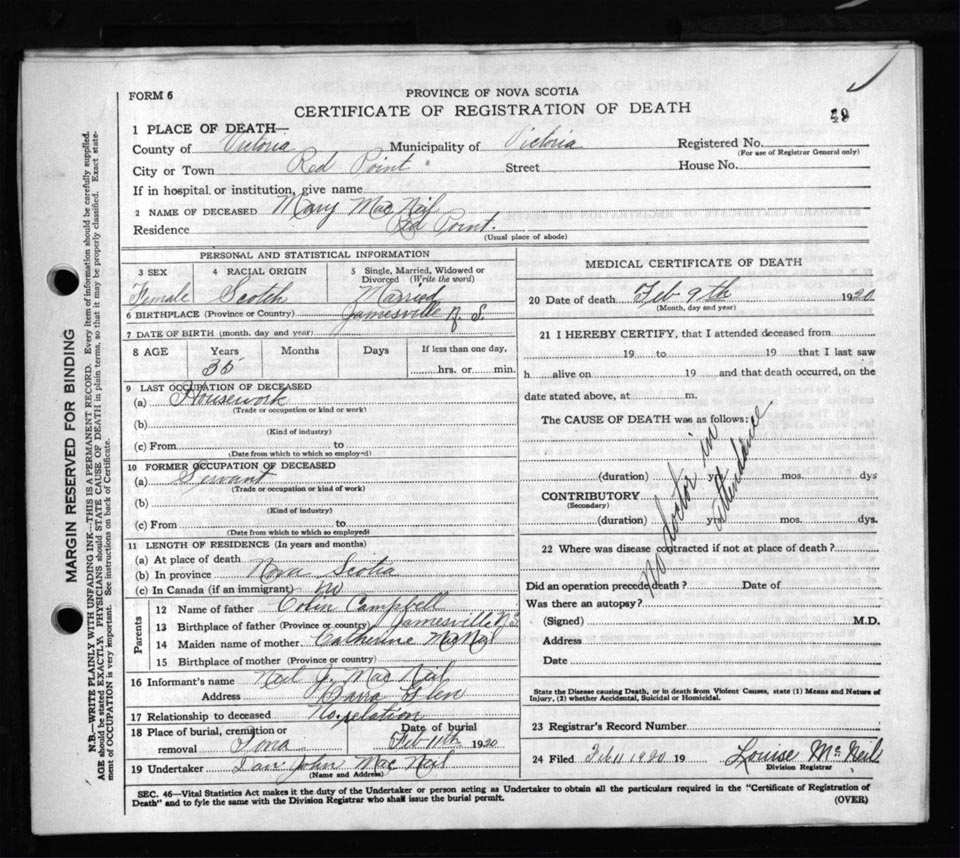 FORM 6
PROVINCE OF NOVA SCOTIA
CERTIFICATE OF REGISTRATION OF DEATH
49
1 PLACE OF DEATH—
County of Victoria Municipality of Victoria Registered No.
(For use of Registrar General only)
City or Town Red Point Street House No.
If in hospital or institution, give name
2 NAME OF DECEASED Mary MacNeil
Residence Red Point.
(Usual place of abode)
PERSONAL AND STATISTICAL INFORMATION
3 SEX 4 RACIAL ORIGIN 5 Single, Married, Widowed or Divorced (Write the word)
Female Scotch Married
6 BIRTHPLACE (Province or Country) Jamesville N. S.
7 DATE OF BIRTH (month, day and year)
8 AGE Years Months Days If less than one day,
35 hrs. or min.
9 LAST OCCUPATION OF DECEASED
(a) Housework
(Trade or occupation or kind or work)
(b)
(Kind of industry)
(c) From to
(Date from which to which so employed)
10 FORMER OCCUPATION OF DECEASED
(a) Servant
(Trade or occupation or kind of work)
(b)
(Kind of industry)
(c) From to
(Date from which to which so employed)
11 LENGTH OF RESIDENCE (In years and months)
(a) At place of death
(b) In province Nova Scotia
(c) In Canada (if an immigrant) no
Parents
12 Name of father Colin Campbell
13 Birthplace of father (Province or country) Jamesville N.S.
14 Maiden name of mother Catherine McNeil
15 Birthplace of mother (Province or country)
16 Informant's name Neil J. MacNeil
Address Barra Glen
17 Relationship to deceased No relation
18 Place of burial, cremation or removal Iona
Date of burial
Feb 11th 1920
19 Undertaker Dan John MacNeil
(Name and Address)
MEDICAL CERTIFICATE OF DEATH
20 Date of death Feb 9th 1920
(Month, day and year)
21 I HEREBY CERTIFY, that I attended deceased from
19 to 19 that I last saw
h alive on 19 and that death occurred, on the
date stated above, at m.
The CAUSE OF DEATH was as follows:
No doctor in
attendance
(duration) yrs. mos. dys
CONTRIBUTORY
(Secondary)
(duration) yrs. mos. dys.
22 Where was disease contracted if not at place of death?
Did an operation precede death? Date of
Was there an autopsy?
(Signed) M.D.
Address
Date
State the Disease causing Death, or in death from Violent Causes, state (1) Means and Nature of
Injury, (2) whether Accidental, Suicidal or Homicidal.
23 Registrar's Record Number
24 Filed Feb 11 1920 19 Louise McNeil
Division Registrar
SEC. 46—Vital Statistics Act makes it the duty of the Undertaker or person acting as Undertaker to obtain all the particulars required in the "Certificate of Registration of
Death" and to fyle the same with the Division Registrar who shall issue the burial permit.
(OVER)
MARGIN RESERVED FOR BINDING
N.B.—WRITE PLAINLY WITH UNFADING INK—THIS IS A PERMANENT RECORD. Every item of information should be carefully supplied.
AGE should be stated EXACTLY. PHYSICIANS should STATE CAUSE OF DEATH in plain terms, so that it may be properly classified. Exact statement of OCCUPATION is very important. See instructions on back of Certificate.